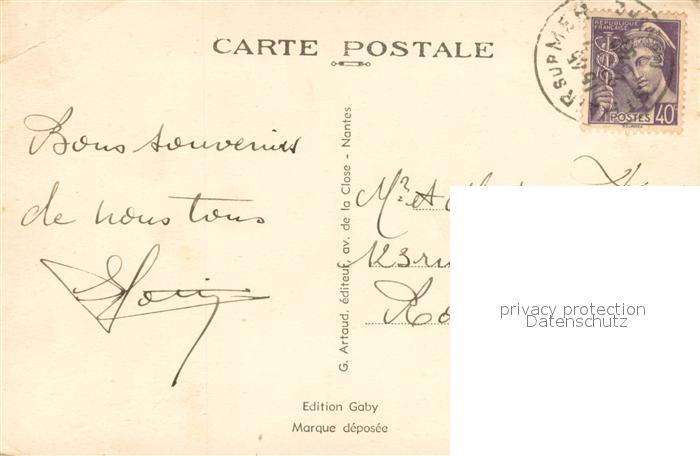 CARTE POSTALE
REPUBLIQUE
FRANÇAISE
POSTES 40c
R SUR MER
Bons souvenirs
de nous tous
G. Artaud, éditeur, av. de la Close - Nantes
Mr et
123 ru
Edition Gaby
Marque déposée
privacy protection
Datenschutz